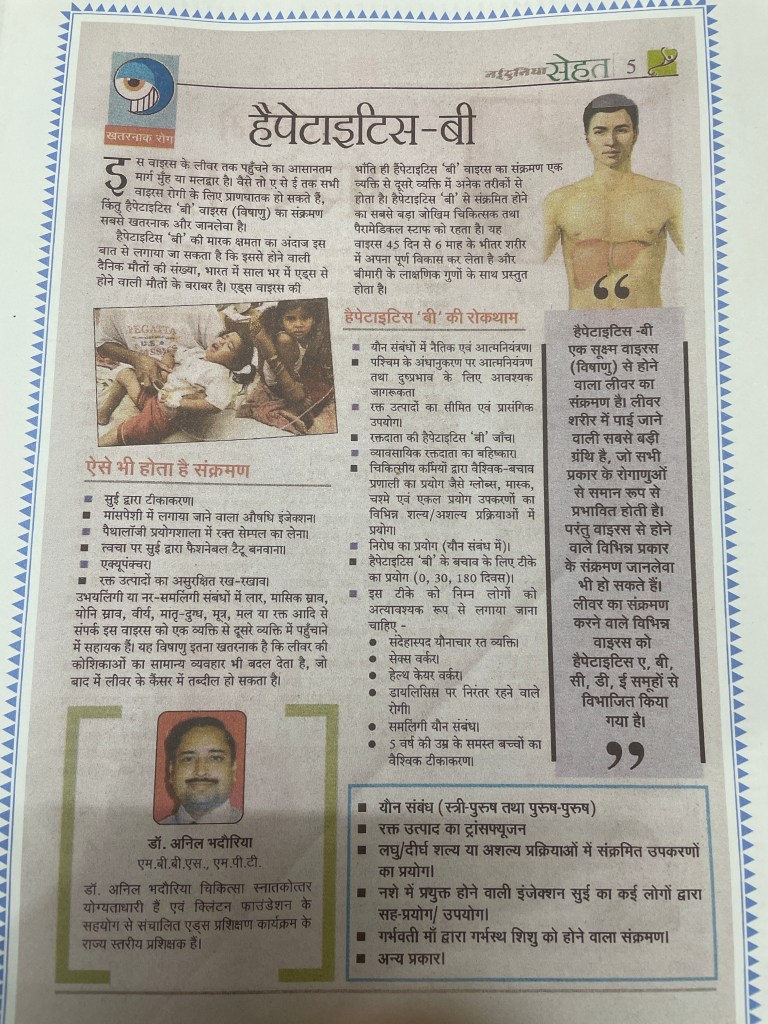 नईदुनिया सेहत 5
खतरनाक रोग
हैपेटाइटिस-बी
इस वाइरस के लीवर तक पहुँचने का आसानतम
मार्ग मुँह या मलद्वार है। वैसे तो ए से ई तक सभी
वाइरस रोगी के लिए प्राणघातक हो सकते हैं,
किंतु हैपेटाइटिस 'बी' वाइरस (विषाणु) का संक्रमण
सबसे खतरनाक और जानलेवा है।
हैपेटाइटिस 'बी' की मारक क्षमता का अंदाज इस
बात से लगाया जा सकता है कि इससे होने वाली
दैनिक मौतों की संख्या, भारत में साल भर में एड्स से
होने वाली मौतों के बराबर है। एड्स वाइरस की
भाँति ही हैपेटाइटिस 'बी' वाइरस का संक्रमण एक
व्यक्ति से दूसरे व्यक्ति में अनेक तरीकों से
होता है। हैपेटाइटिस 'बी' से संक्रमित होने
का सबसे बड़ा जोखिम चिकित्सक तथा
पैरामेडिकल स्टाफ को रहता है। यह
वाइरस 45 दिन से 6 माह के भीतर शरीर
में अपना पूर्ण विकास कर लेता है और
बीमारी के लाक्षणिक गुणों के साथ प्रस्तुत
होता है।
REGATTA
U.S.
ऐसे भी होता है संक्रमण
■ सुई द्वारा टीकाकरण।
■ मांसपेशी में लगाया जाने वाला औषधि इंजेक्शन।
■ पैथालॉजी प्रयोगशाला में रक्त सेम्पल का लेना।
■ त्वचा पर सुई द्वारा फैशनेबल टैटू बनवाना।
■ एक्यूपंक्चर।
■ रक्त उत्पादों का असुरक्षित रख-रखाव।
उभयलिंगी या नर-समलिंगी संबंधों में लार, मासिक स्राव,
योनि स्राव, वीर्य, मातृ-दुग्ध, मूत्र, मल या रक्त आदि से
संपर्क इस वाइरस को एक व्यक्ति से दूसरे व्यक्ति में पहुँचाने
में सहायक हैं। यह विषाणु इतना खतरनाक है कि लीवर की
कोशिकाओं का सामान्य व्यवहार भी बदल देता है, जो
बाद में लीवर के कैंसर में तब्दील हो सकता है।
हैपेटाइटिस 'बी' की रोकथाम
■ यौन संबंधों में नैतिक एवं आत्मनियंत्रण।
■ पश्चिम के अंधानुकरण पर आत्मनियंत्रण
तथा दुष्प्रभाव के लिए आवश्यक
जागरूकता
■ रक्त उत्पादों का सीमित एवं प्रासंगिक
उपयोग।
■ रक्तदाता की हैपेटाइटिस 'बी' जाँच।
■ व्यावसायिक रक्तदाता का बहिष्कार।
■ चिकित्सीय कर्मियों द्वारा वैश्विक-बचाव
प्रणाली का प्रयोग जैसे ग्लोब्स, मास्क,
चश्मे एवं एकल प्रयोग उपकरणों का
विभिन्न शल्य/अशल्य प्रक्रियाओं में
प्रयोग।
■ निरोध का प्रयोग (यौन संबंध में)।
■ हैपेटाइटिस 'बी' के बचाव के लिए टीके
का प्रयोग (0, 30, 180 दिवस)।
■ इस टीके को निम्न लोगों को
अत्यावश्यक रूप से लगाया जाना
चाहिए -
● संदेहास्पद यौनाचार रत व्यक्ति।
● सेक्स वर्कर।
● हेल्थ केयर वर्कर।
● डायलिसिस पर निरंतर रहने वाले
रोगी।
● समलिंगी यौन संबंध।
● 5 वर्ष की उम्र के समस्त बच्चों का
वैश्विक टीकाकरण।
“
हैपेटाइटिस -बी
एक सूक्ष्म वाइरस
(विषाणु) से होने
वाला लीवर का
संक्रमण है। लीवर
शरीर में पाई जाने
वाली सबसे बड़ी
ग्रंथि है, जो सभी
प्रकार के रोगाणुओं
से समान रूप से
प्रभावित होती है।
परंतु वाइरस से होने
वाले विभिन्न प्रकार
के संक्रमण जानलेवा
भी हो सकते हैं।
लीवर का संक्रमण
करने वाले विभिन्न
वाइरस को
हैपेटाइटिस ए, बी,
सी, डी, ई समूहों से
विभाजित किया
गया है।
”
डॉ. अनिल भदौरिया
एम.बी.बी.एस., एम.पी.टी.
डॉ. अनिल भदौरिया चिकित्सा स्नातकोत्तर
योग्यताधारी हैं एवं क्लिंटन फाउंडेशन के
सहयोग से संचालित एड्स प्रशिक्षण कार्यक्रम के
राज्य स्तरीय प्रशिक्षक हैं।
■ यौन संबंध (स्त्री-पुरुष तथा पुरुष-पुरुष)
■ रक्त उत्पाद का ट्रांसफ्यूजन
■ लघु/दीर्घ शल्य या अशल्य प्रक्रियाओं में संक्रमित उपकरणों
का प्रयोग।
■ नशे में प्रयुक्त होने वाली इंजेक्शन सुई का कई लोगों द्वारा
सह-प्रयोग/ उपयोग।
■ गर्भवती माँ द्वारा गर्भस्थ शिशु को होने वाला संक्रमण।
■ अन्य प्रकार।